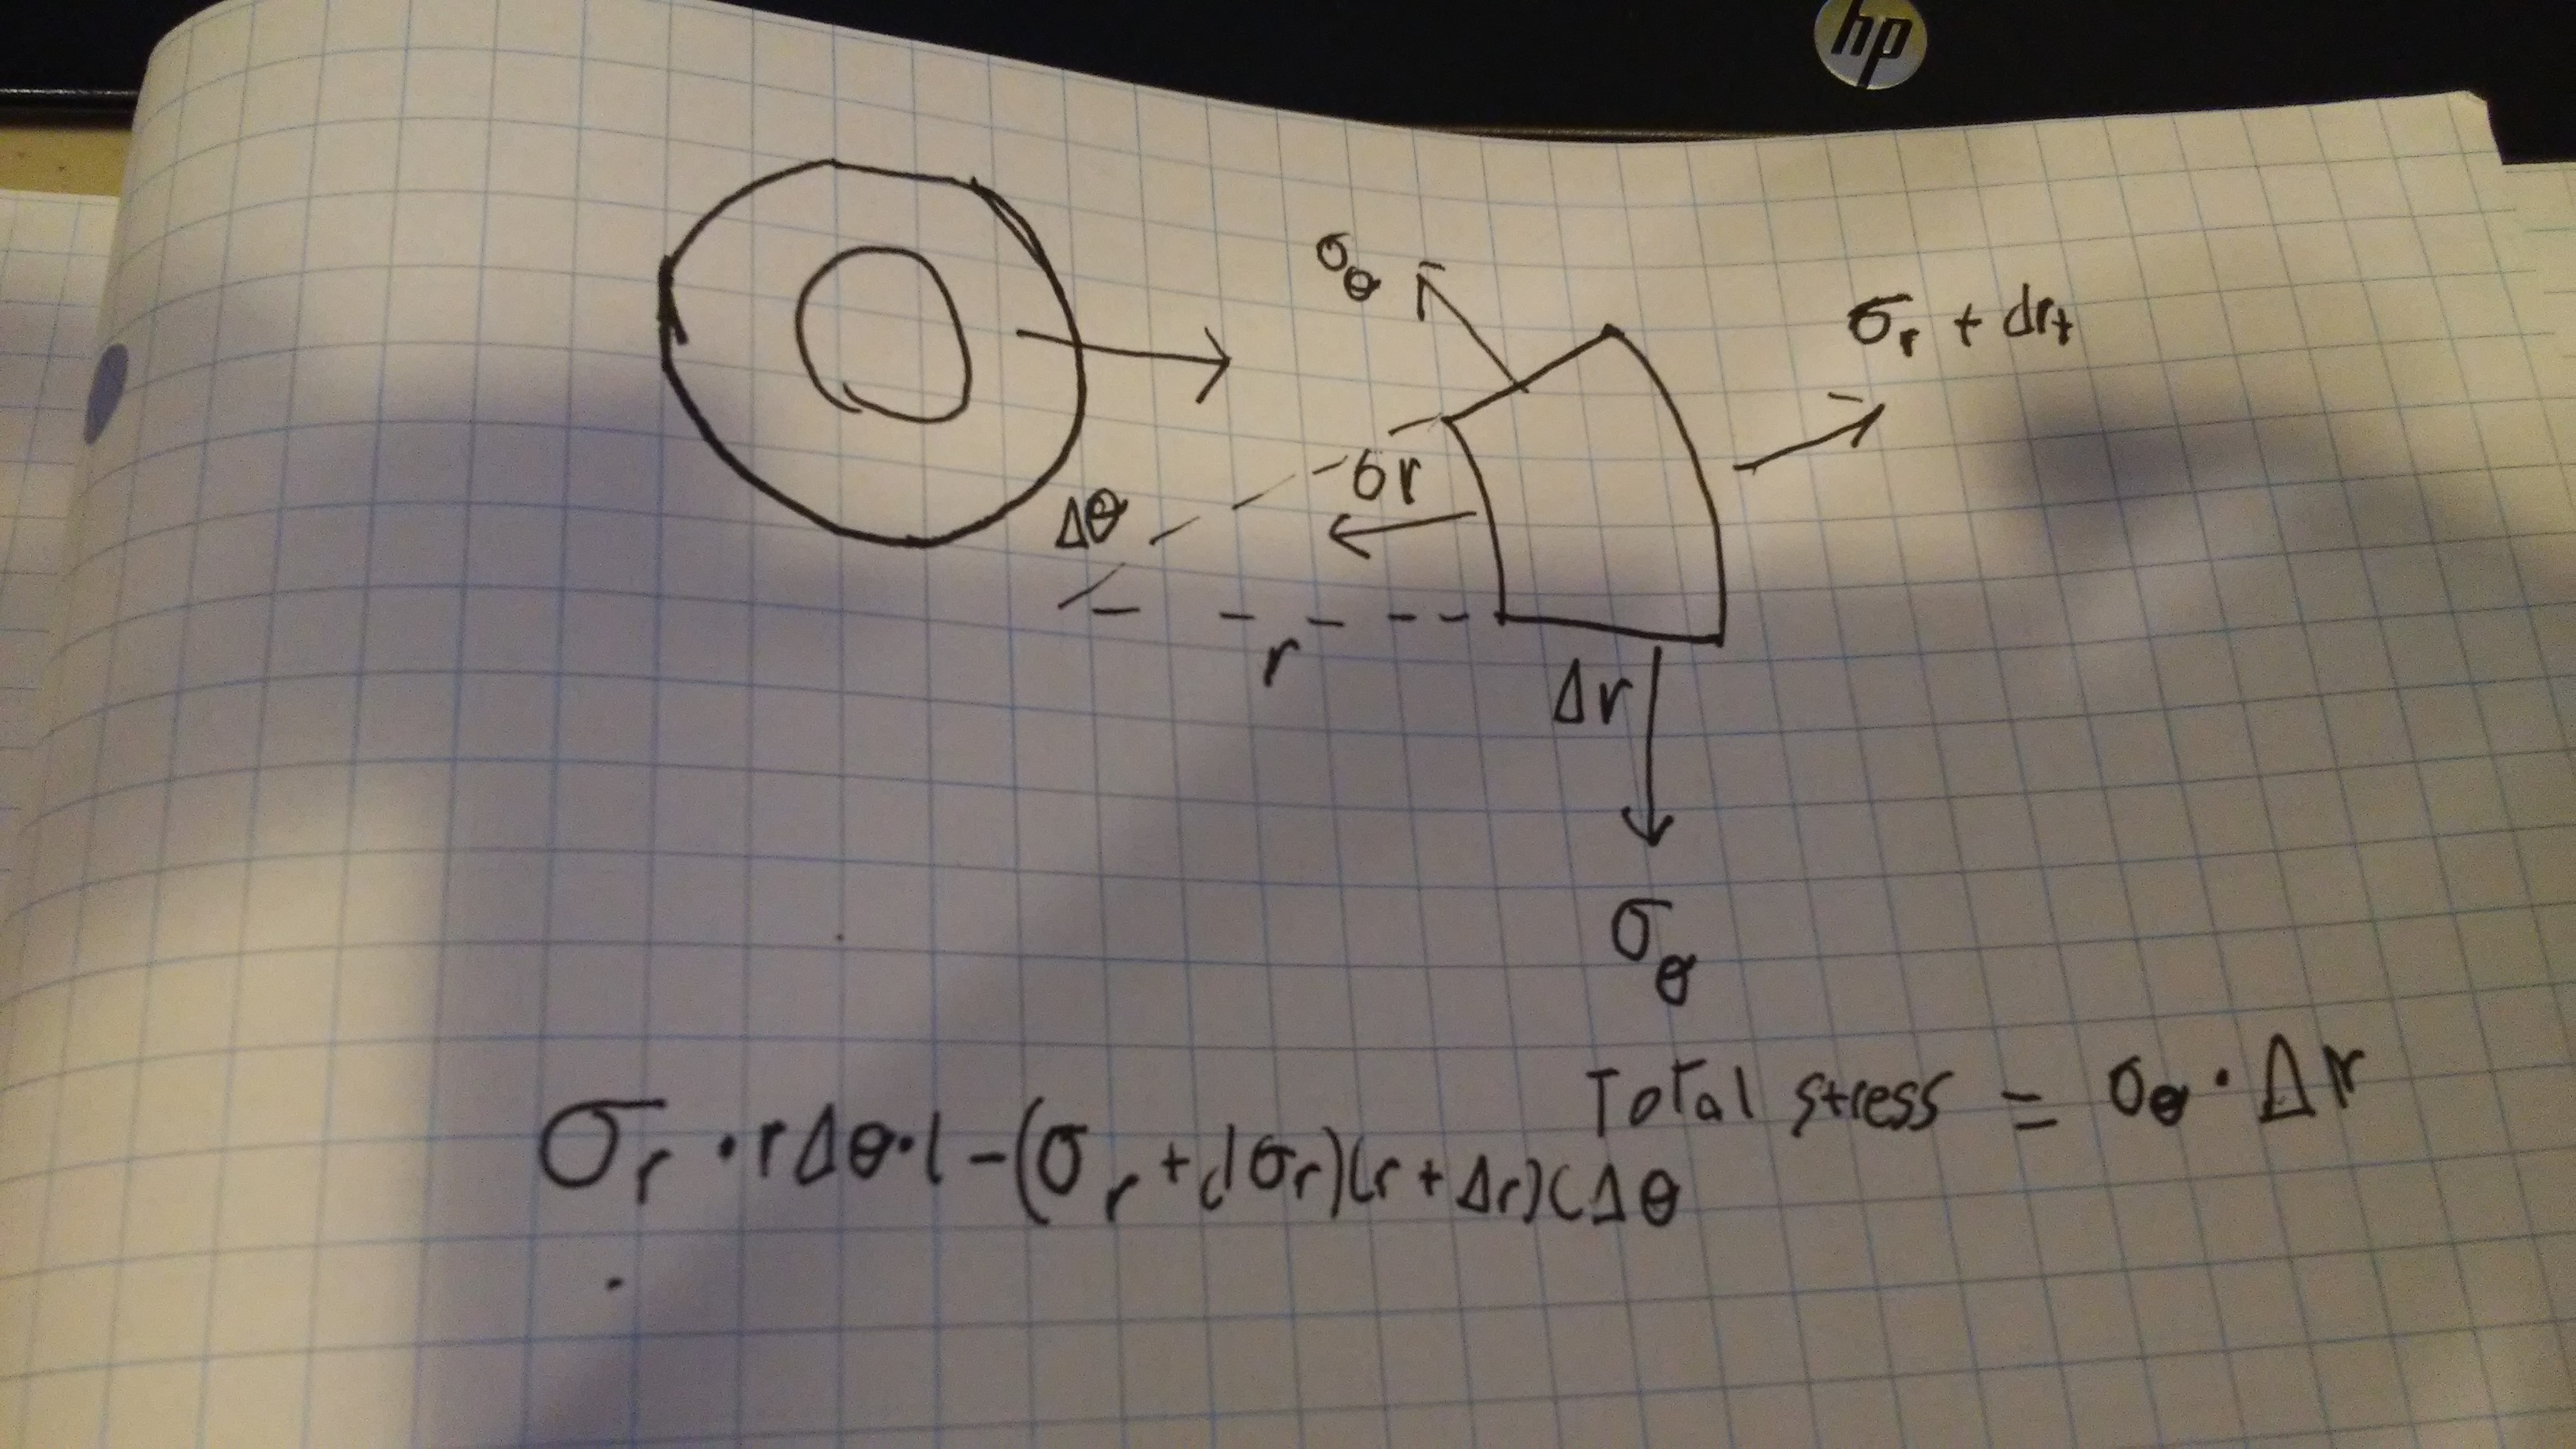 hp
σθ
σr + drt
σr
Δθ
r
Δr
σθ
Total stress = σθ · Δr
σr · rΔθ·1 - (σr + dσr)(r + Δr)(Δθ